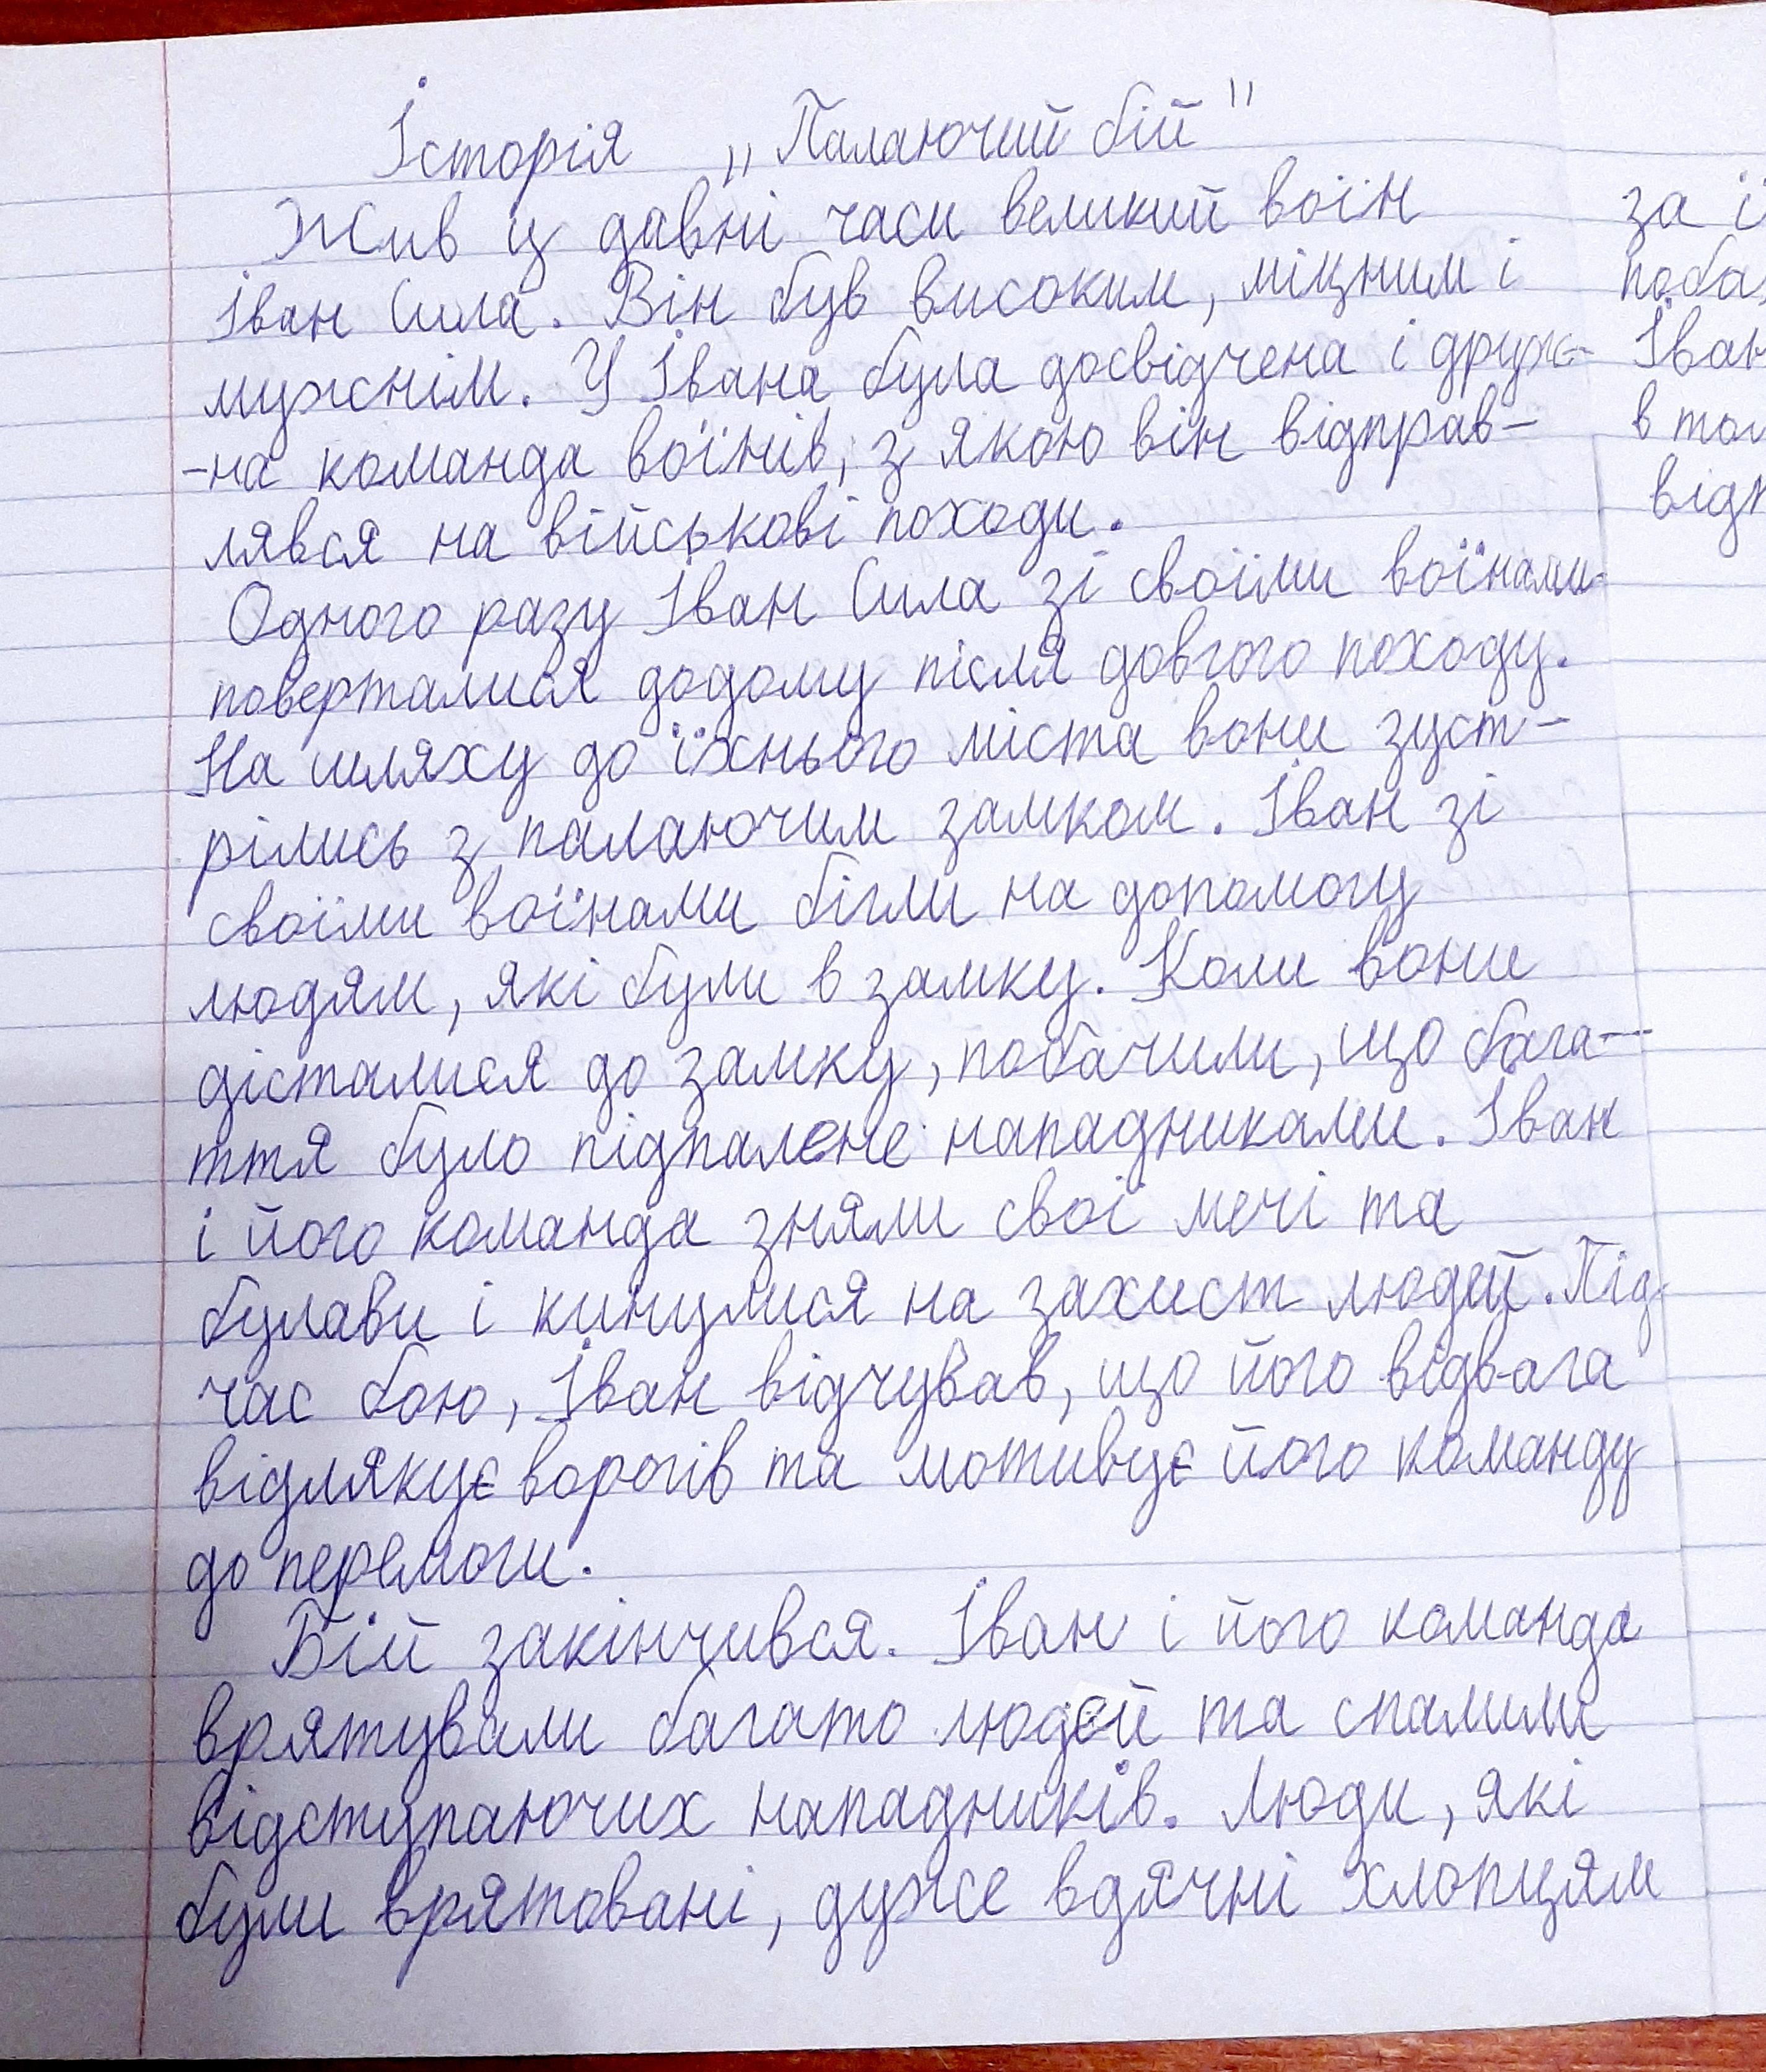 Історія „Палаючий бій"
Жив у давні часи великий воїн
Іван Сила. Він був високим, міцним і
мужнім. У Івана була досвідчена і друж-
-на команда воїнів, з якою він відправ-
лявся на військові походи.
Одного разу Іван Сила зі своїми воїнами
поверталися додому після довгого походу.
На шляху до їхнього міста вони зуст-
рілись з палаючим замком. Іван зі
своїми воїнами бігли на допомогу
людям, які були в замку. Коли вони
дісталися до замку, побачили, що бага-
ття було підпалене нападниками. Іван
і його команда зняли свої мечі та
булави і кинулися на захист людей. Під
час бою, Іван відчував, що його відвага
відлякує ворогів та мотивує його команду
до перемоги.
Бій закінчився. Іван і його команда
врятували багато людей та спалили
відступаючих нападників. Люди, які
були врятовані, дуже вдячні хлопцям
за
Іван
в